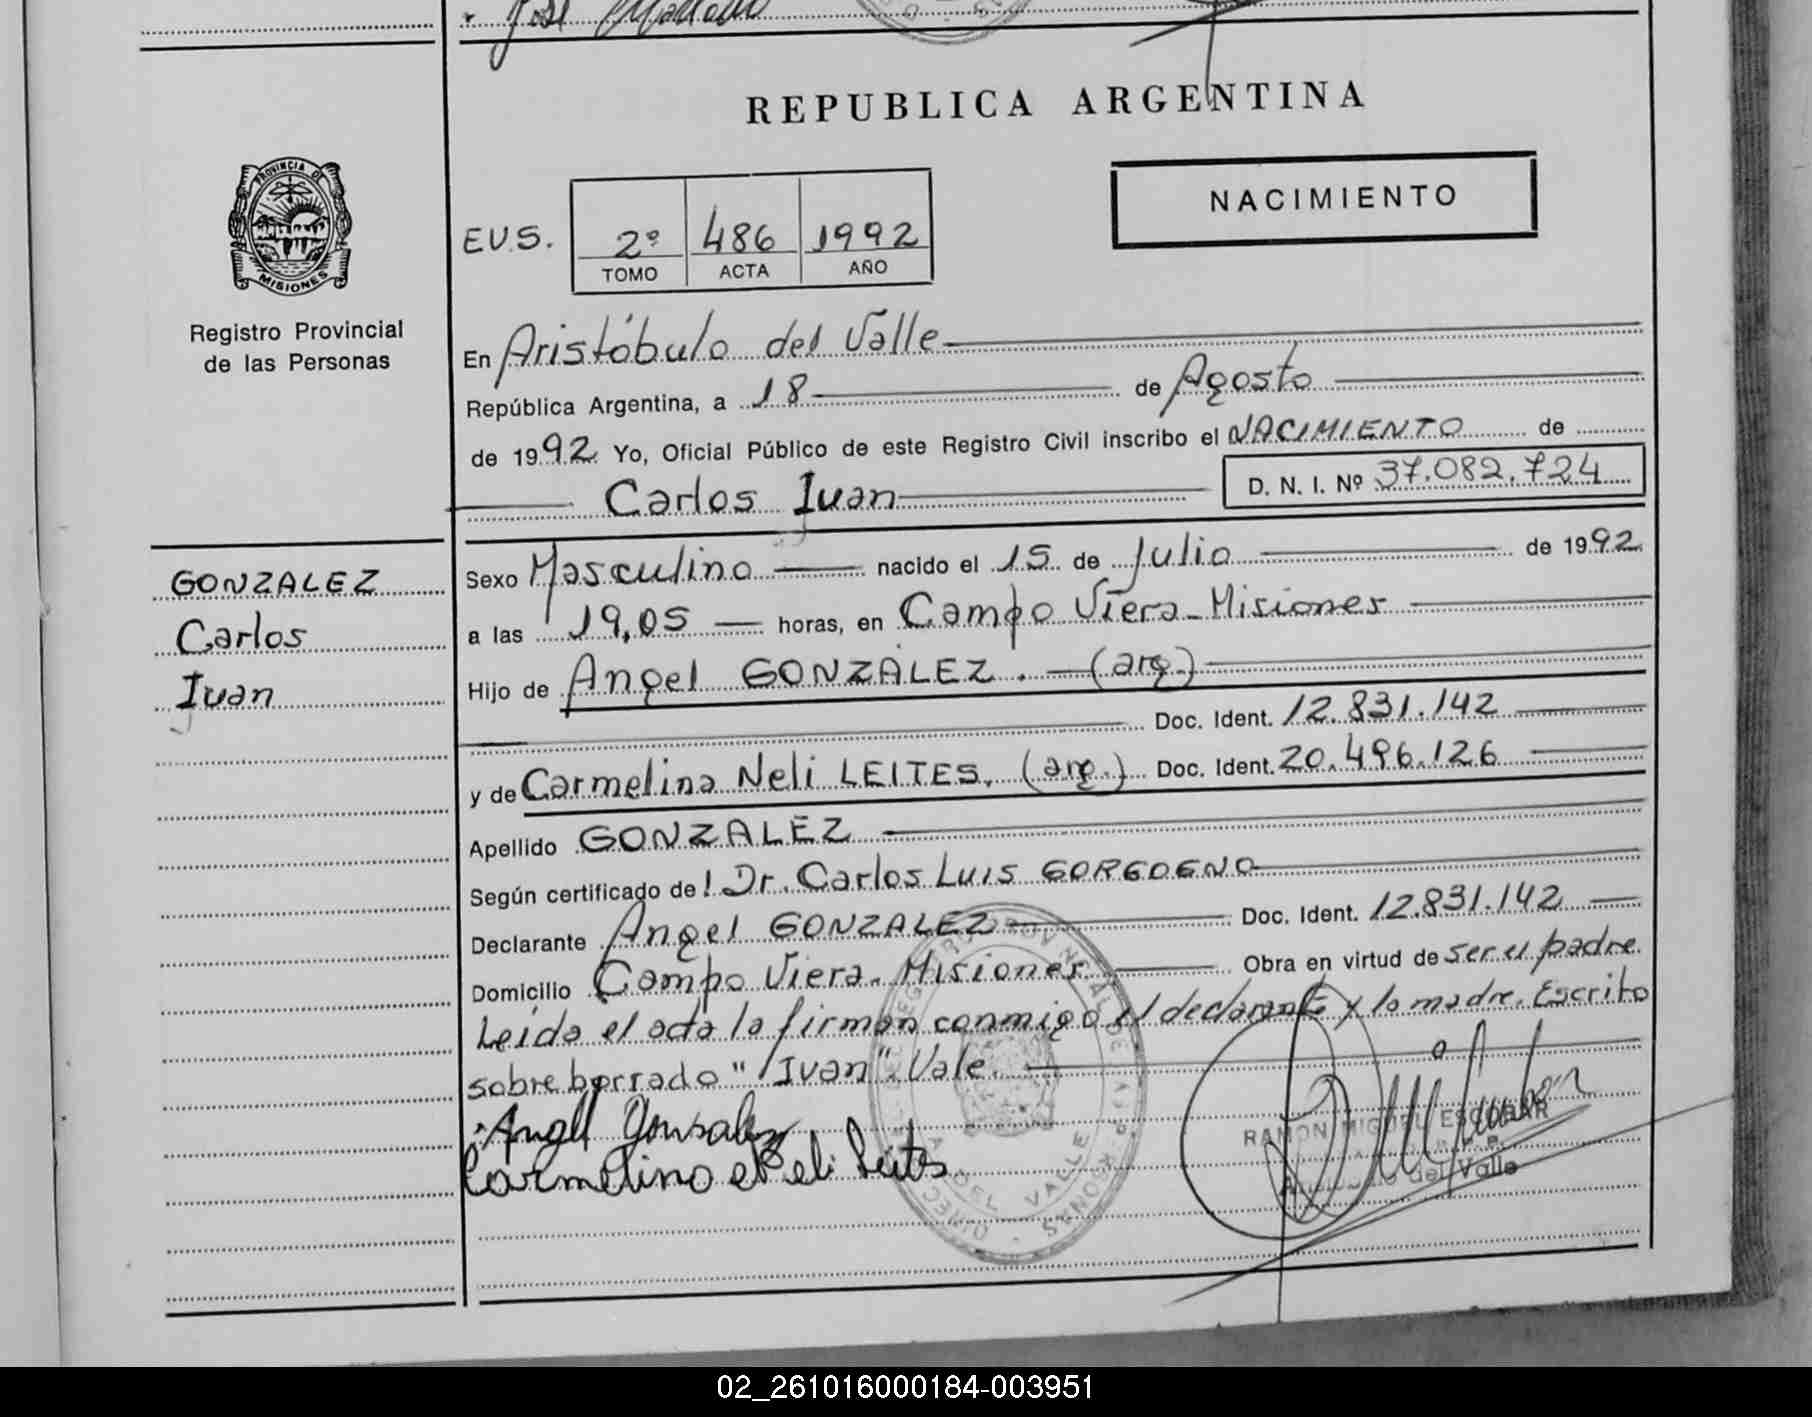 José
REPUBLICA ARGENTINA
NACIMIENTO
PROVINCIA DE
MISIONES
Registro Provincial
de las Personas
E.U.S. 2º 486 1992
TOMO ACTA AÑO
En Aristóbulo del Valle
República Argentina, a 18 de Agosto
de 1992. Yo, Oficial Público de este Registro Civil inscribo el NACIMIENTO de
Carlos Ivan D. N. I. Nº 37.082.724
GONZALEZ
Carlos
Ivan
Sexo Masculino nacido el 15 de Julio de 1992
a las 19,05 horas, en Campo Viera - Misiones
Hijo de Angel GONZALEZ. (arg.)
Doc. Ident. 12.831.142
y de Carmelina Neli LEITES, (arg.) Doc. Ident. 20.496.126
Apellido GONZALEZ
Según certificado de: Dr. Carlos Luis GORGOGNO
Declarante Angel GONZALEZ Doc. Ident. 12.831.142
Domicilio Campo Viera - Misiones Obra en virtud de ser el padre.
Leída el acta la firman conmigo el declarante y la madre. Escrito
sobre borrado "Ivan". Vale.
Angel Gonsalez
Carmelina Neli Leites
RAMON MIGUEL ESCOBAR
del Valle
DEL VALLE
02_261016000184-003951